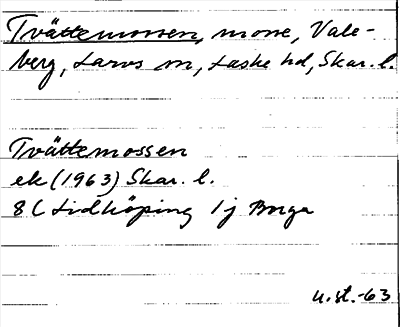 Tvättemossen, mosse, Vale-
berg, Larvs sn, Laske hd, Skar. l.
Tvättemossen
ek (1963) Skar. l.
8 C Lidköping 1j Borga
u.st.-63